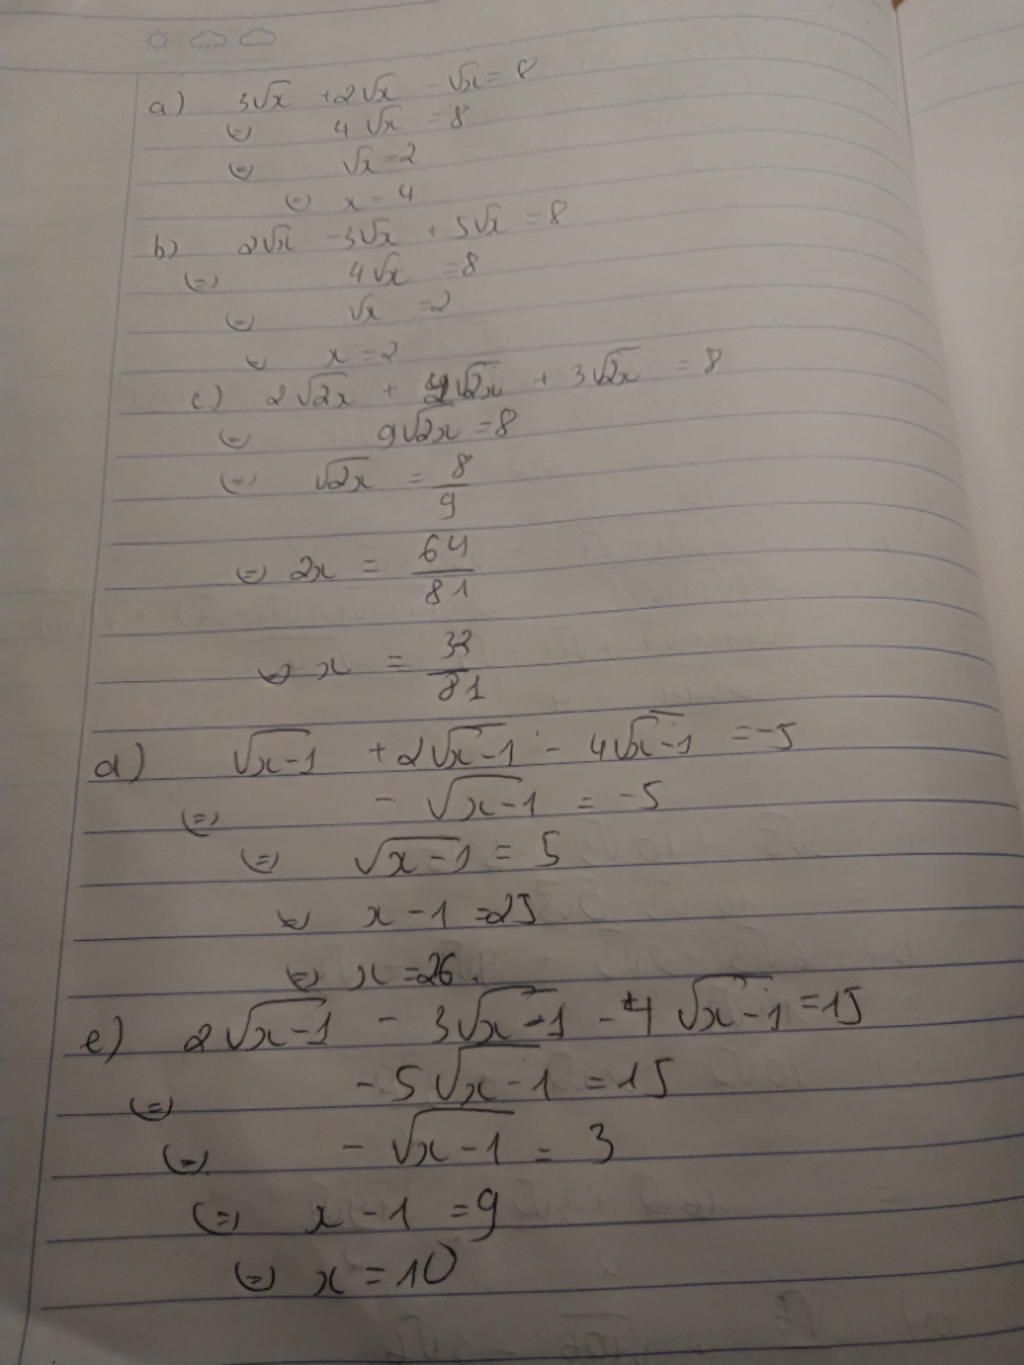 a) 3√x + 2√x - √x = 8
⇔ 4√x = 8
⇔ √x = 2
⇔ x = 4
b) 2√x - 3√x + 5√x = 8
⇔ 4√x = 8
⇔ √x = 2
⇔ x = 2
c) 2√2x + 4√2x + 3√2x = 8
⇔ 9√2x = 8
⇔ √2x = 8/9
⇔ 2x = 64/81
⇔ x = 32/81
d) √x-1 + 2√x-1 - 4√x-1 = -5
⇔ - √x-1 = -5
⇔ √x-1 = 5
⇔ x - 1 = 25
⇔ x = 26.
e) 2√x-1 - 3√x-1 - 4√x-1 = 15
⇔ - 5√x-1 = 15
⇔ - √x-1 = 3
⇔ x - 1 = 9
⇔ x = 10